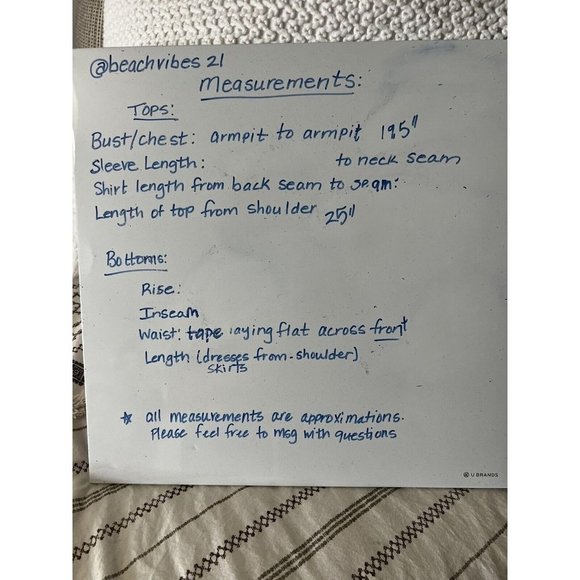 @beachvibes 21
Measurements:
TOPS:
Bust/chest: armpit to armpit 19.5"
Sleeve Length: to neck seam
Shirt length from back seam to seam:
Length of top from shoulder 25"
Bottoms:
Rise:
Inseam
Waist: tape laying flat across front
Length (dresses from-shoulder)
skirts
☆ all measurements are approximations.
Please feel free to msg with questions
U BRANDS